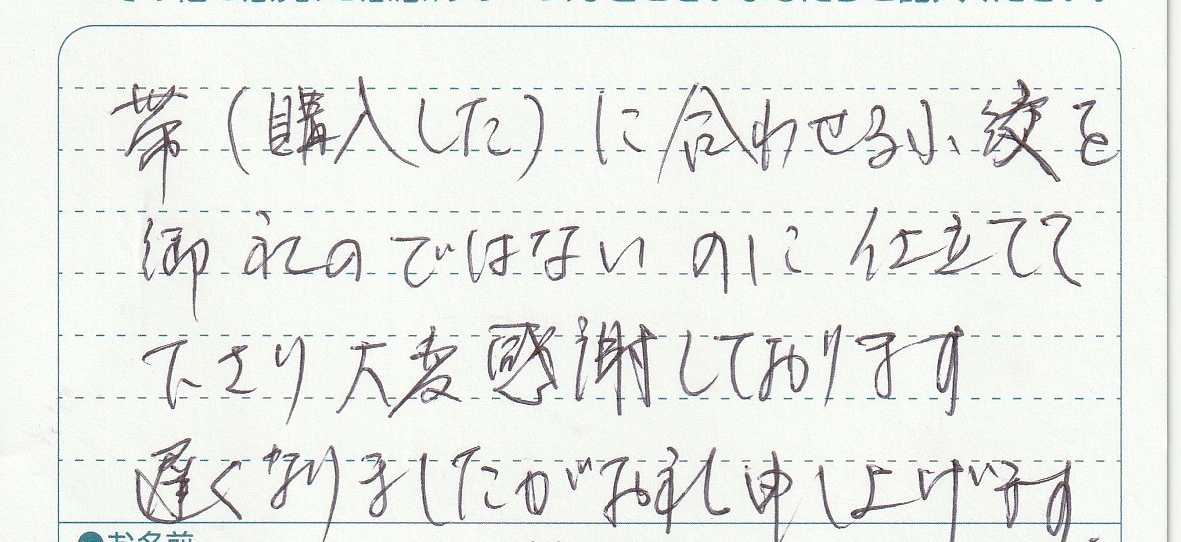 帯(購入した)に合わせる小絞を
御社のではないのに仕立てて
下さり大変感謝しております
遅くなりましたがお礼申し上げます。
●お名前